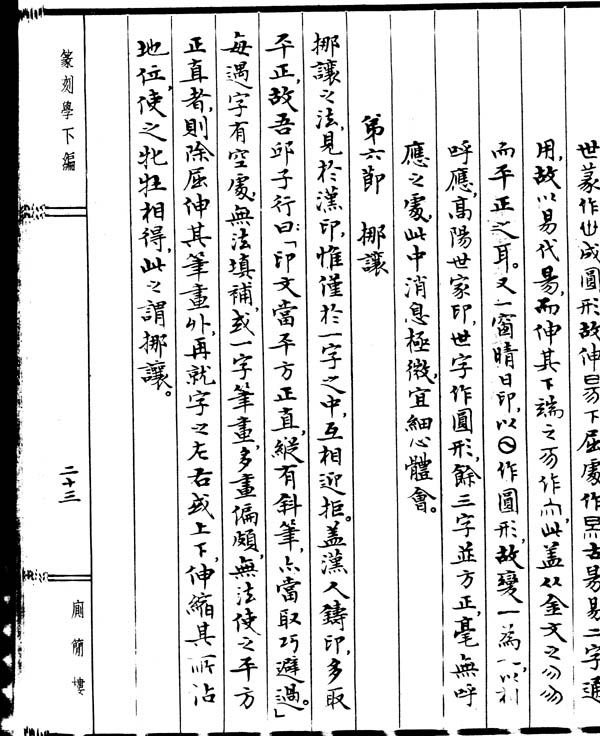 世篆作也成圓形故伸易下屈處作古易易二字通
用,故以易代昜,而伸其下端之作此蓋从金文之
而平正之耳。又一窗晴日印,以作圓形,故變一為以利
呼應,高陽世家印,世字作圓形,餘三字並方正,毫無呼
應之處,此中消息極微,宜細心體會。
第六節 挪讓
挪讓之法,見於漢印,惟僅於一字之中,互相迎拒。蓋漢人鑄印,多取
平正,故吾邱子行曰:「印文當平方正直,縱有斜筆,亦當取巧避過。」
每遇字有空處,無法填補,或一字筆畫,多畫偏頗,無法使之平方
正直者,則除屈伸其筆畫外,再就字之左右或上下,伸縮其所沾
地位,使之牝牡相得,此之謂挪讓。
篆刻學下編
二十三
廁簡樓